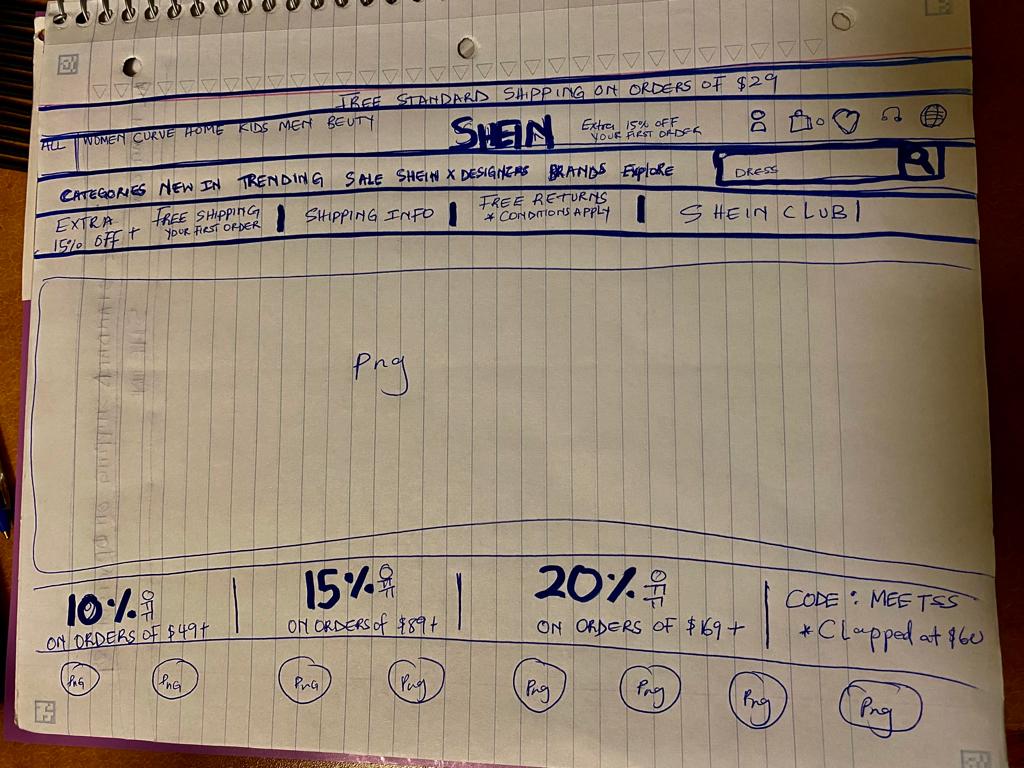 FREE STANDARD SHIPPING ON ORDERS OF $29
ALL WOMEN CURVE HOME KIDS MEN BEUTY
SHEIN
Extra 15% OFF
YOUR FIRST ORDER
CATEGORIES NEW IN TRENDING SALE SHEIN X DESIGNERS BRANDS Explore
DRESS
EXTRA
15% OFF +
FREE SHIPPING
YOUR FIRST ORDER
SHIPPING INFO
FREE RETURNS
*CONDITIONS APPLY
SHEIN CLUB
Png
10% OFF
ON ORDERS OF $49+
15% OFF
ON ORDERS of $89+
20% OFF
ON ORDERS OF $169+
CODE : MEETSS
*CLapped at $60
PnG PnG PnG Png Png Png Png Png